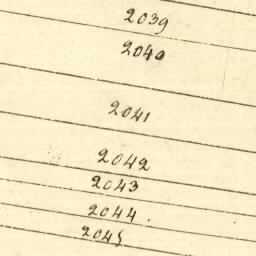 2039
2040
2041
2042
2043
2044.
2045